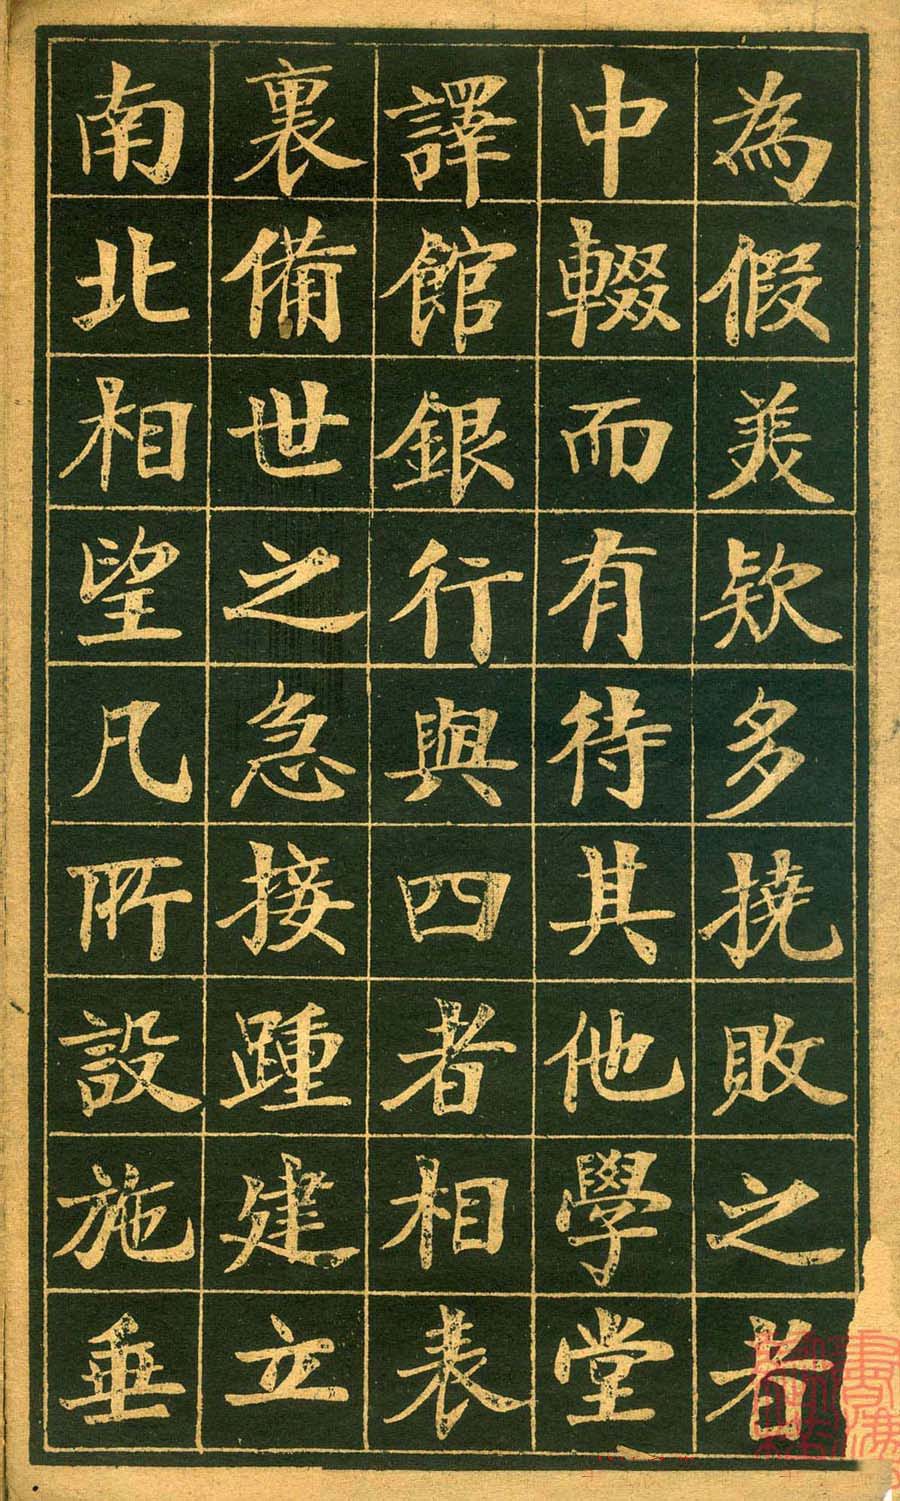 為假美欵多撓敗之者
中輟而有待其他學堂
譯館銀行與四者相表
裏備世之急接踵建立
南北相望凡所設施垂